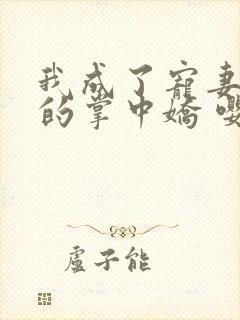 我成了寵妻
的掌中嬌嚶
盧子能